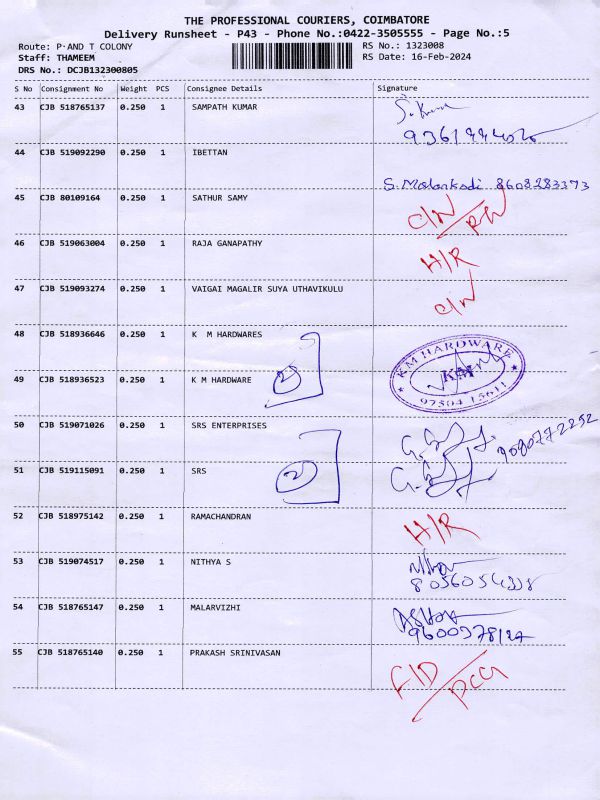 THE PROFESSIONAL COURIERS, COIMBATORE
Delivery Runsheet - P43 - Phone No.:0422-3505555 - Page No.:5
Route: P AND T COLONY RS No.: 1323008
Staff: THAMEEM RS Date: 16-Feb-2024
DRS No.: DCJB132300805
S No Consignment No Weight PCS Consignee Details Signature
43 CJB 518765137 0.250 1 SAMPATH KUMAR
44 CJB 519092290 0.250 1 IBETTAN
S. Malarkodi 8608283373
45 CJB 80109164 0.250 1 SATHUR SAMY C/N
46 CJB 519063004 0.250 1 RAJA GANAPATHY H/R
47 CJB 519093274 0.250 1 VAIGAI MAGALIR SUYA UTHAVIKULU C/N
48 CJB 518936646 0.250 1 K M HARDWARES
KM HARDWARE
KM
2
49 CJB 518936523 0.250 1 K M HARDWARE
07504 15611
50 CJB 519071026 0.250 1 SRS ENTERPRISES 9080772252
51 CJB 519115091 0.250 1 SRS
2
52 CJB 518975142 0.250 1 RAMACHANDRAN H/R
53 CJB 519074517 0.250 1 NITHYA S
54 CJB 518765147 0.250 1 MALARVIZHI
55 CJB 518765140 0.250 1 PRAKASH SRINIVASAN